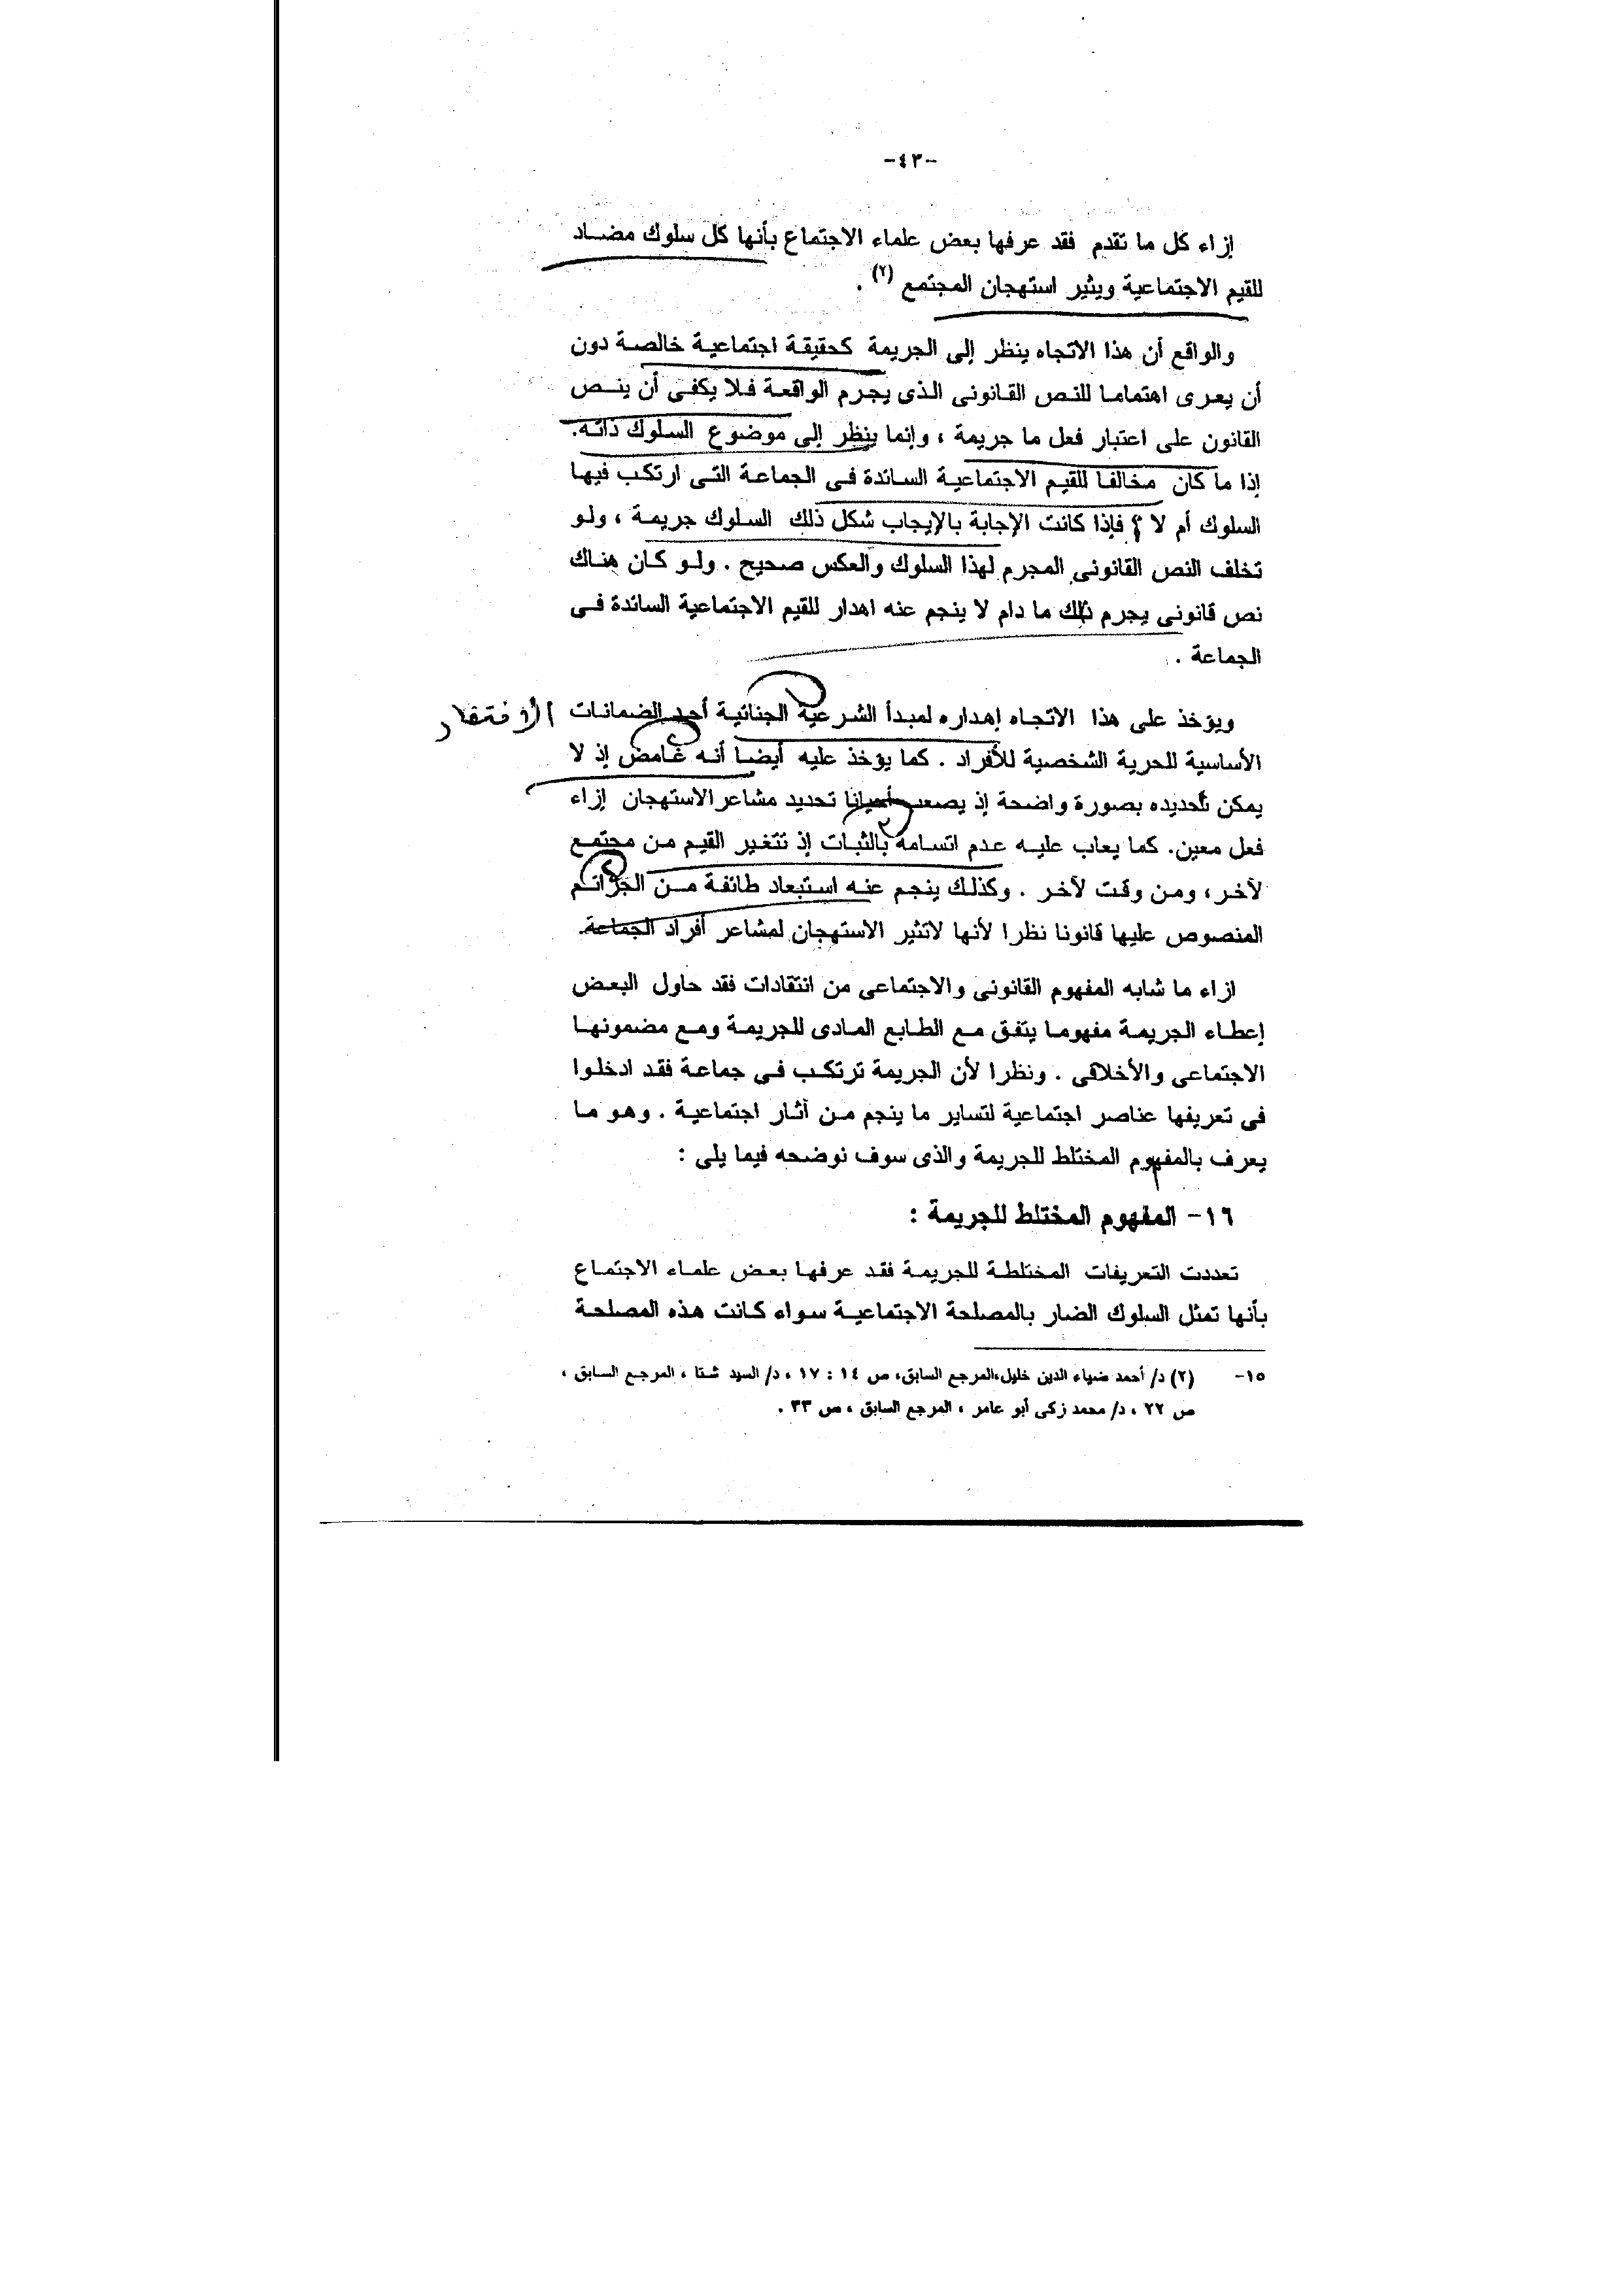 -٤٣-
إزاء كل ما تقدم فقد عرفها بعض علماء الاجتماع بأنها كل سلوك مضاد
للقيم الاجتماعية ويثير استهجان المجتمع (٢) .
والواقع أن هذا الاتجاه ينظر إلى الجريمة كحقيقة اجتماعية خالصة دون
أن يعرى اهتماما للنص القانونى الذى يجرم الواقعة فلا يكفى أن ينص
القانون على اعتبار فعل ما جريمة ، وإنما ينظر إلى موضوع السلوك ذاته.
إذا ما كان مخالفا للقيم الاجتماعية السائدة فى الجماعة التى ارتكب فيها
السلوك أم لا ؟ فإذا كانت الإجابة بالإيجاب شكل ذلك السلوك جريمة ، ولو
تخلف النص القانونى المجرم لهذا السلوك والعكس صحيح . ولو كان هناك
نص قانونى يجرم ذلك ما دام لا ينجم عنه اهدار للقيم الاجتماعية السائدة فى
الجماعة .
ويؤخذ على هذا الاتجاه إهداره لمبدأ الشرعية الجنائية أحد الضمانات
الأساسية للحرية الشخصية للأفراد . كما يؤخذ عليه أيضا أنه غامض إذ لا
يمكن تحديده بصورة واضحة إذ يصعب أحيانا تحديد مشاعر الاستهجان إزاء
فعل معين. كما يعاب عليه عدم اتسامه بالثبات إذ تتغير القيم من مجتمع
لآخر ، ومن وقت لآخر . وكذلك ينجم عنه استبعاد طائفة من الجرائم
المنصوص عليها قانونا نظرا لأنها لاتثير الاستهجان لمشاعر أفراد الجماعة.
ازاء ما شابه المفهوم القانونى والاجتماعى من انتقادات فقد حاول البعض
إعطاء الجريمة مفهوما يتفق مع الطابع المادى للجريمة ومع مضمونها
الاجتماعى والأخلاقى . ونظرا لأن الجريمة ترتكب فى جماعة فقد ادخلوا
فى تعريفها عناصر اجتماعية لتساير ما ينجم من آثار اجتماعية . وهو ما
يعرف بالمفهوم المختلط للجريمة والذى سوف نوضحه فيما يلى :
١٦- المفهوم المختلط للجريمة :
تعددت التعريفات المختلطة للجريمة فقد عرفها بعض علماء الاجتماع
بأنها تمثل السلوك الضار بالمصلحة الاجتماعية سواء كانت هذه المصلحة
١٥- (٢) د/ أحمد ضياء الدين خليل،المرجع السابق، ص ١٤ : ١٧ ، د/ السيد شتا ، المرجع السابق ،
ص ٢٢ ، د/ محمد زكى أبو عامر ، المرجع السابق ، ص ٣٣ .